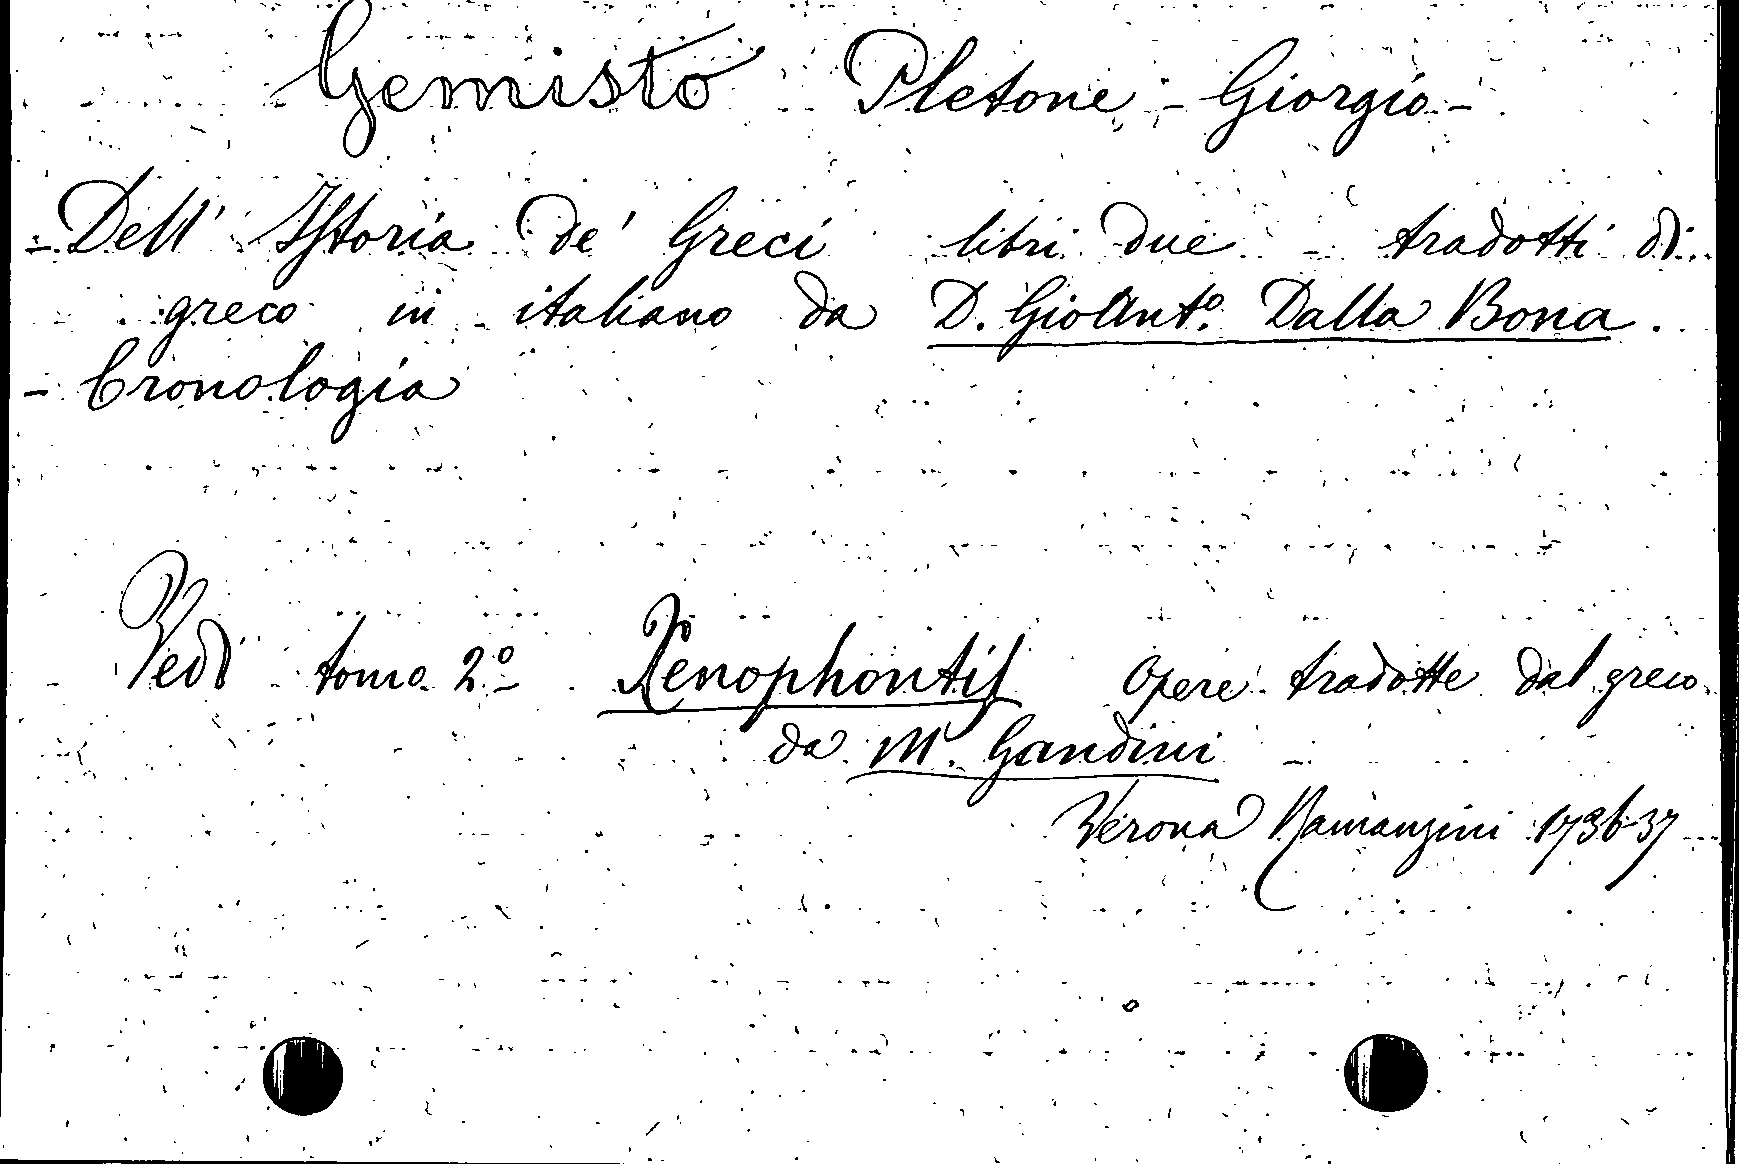 Gemisto Pletone - Giorgio -
- Dell' Istoria de' Greci libri due - tradotti di
greco in italiano da D. Gio Ant.º Dalla Bona.
- Cronologia
Vedi tomo 2º Xenophontis Opere tradotte dal greco
da M. Gandini -
Verona Ramanzini 1736-37